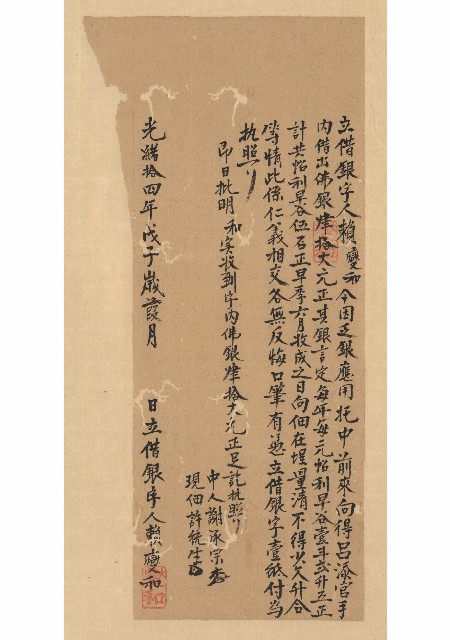 立借銀字人賴變和今因乏銀應用托中前來向得呂添官手
內借出佛銀肆拾大元正其銀言定每年每元帖利早谷壹斗弍升五正
計共帖利早谷伍石正早季六月收成之日向佃在埕量清不得少欠升合
等情此係仁義相交各無反悔口筆有憑立借銀字壹紙付為
执照
即日批明和實收到字內佛銀肆拾大元正足訖执照
中人謝承宗
現佃許統生
光緒拾四年戊子歲葭月 日立借銀字人賴變和